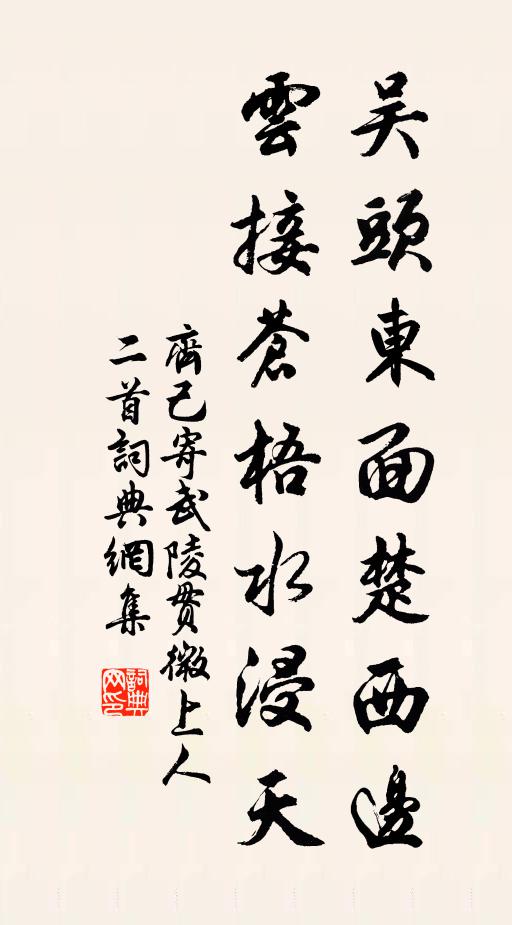 吴頭東面楚西邊
雲接蒼梧水浸天
齊己寄武陵貫微上人
二首詞典網集
詞典網印